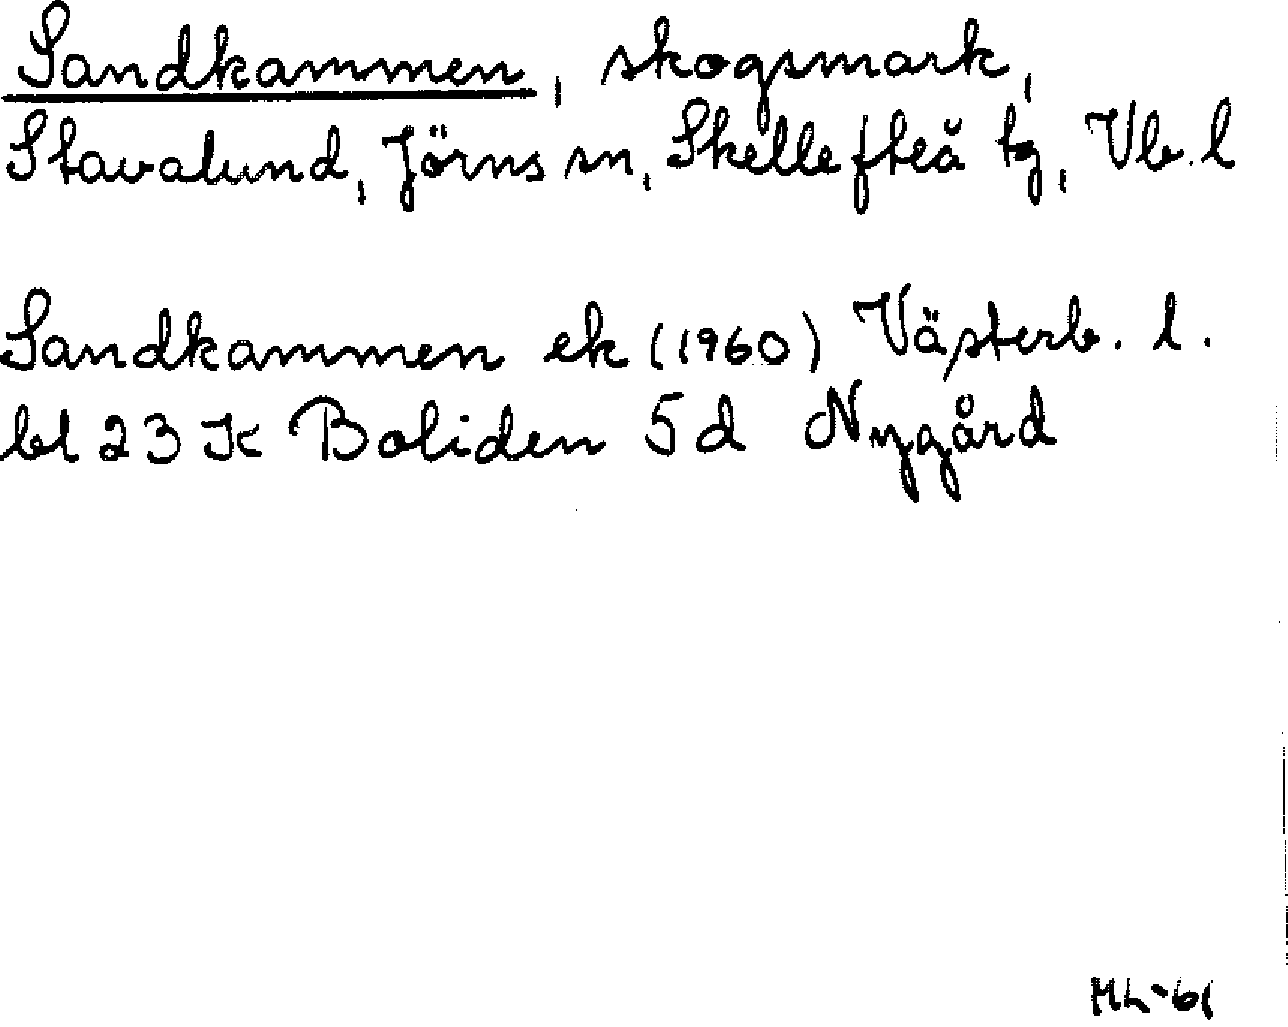 Sandkammen, skogsmark,
Stavalund, Jörns sn, Skellefteå tg, Vb. l
Sandkammen ek (1960) Västerb. l.
bl 23 K Boliden 5 d Nygård
ML-61